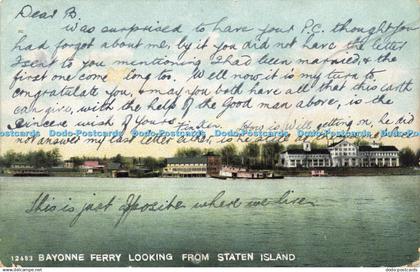 Dear B.
was surprised to have your P.C. thought you
had forgot about me, by it you did not have the letter
I sent to you mentioning I had been married, & the
first one come long too. Well now it is my turn to
congratulate you, & may you both have all that this earth
can give, with the help of the Good man above, is the
sincere wish of yours How is Will getting on, he did
not answer my last letter either, is he
This is just oposite where we live.
12483 BAYONNE FERRY LOOKING FROM STATEN ISLAND
Dodo-Postcards Dodo-Postcards Dodo-Postcards Dodo-Postcards Dodo-Postcards